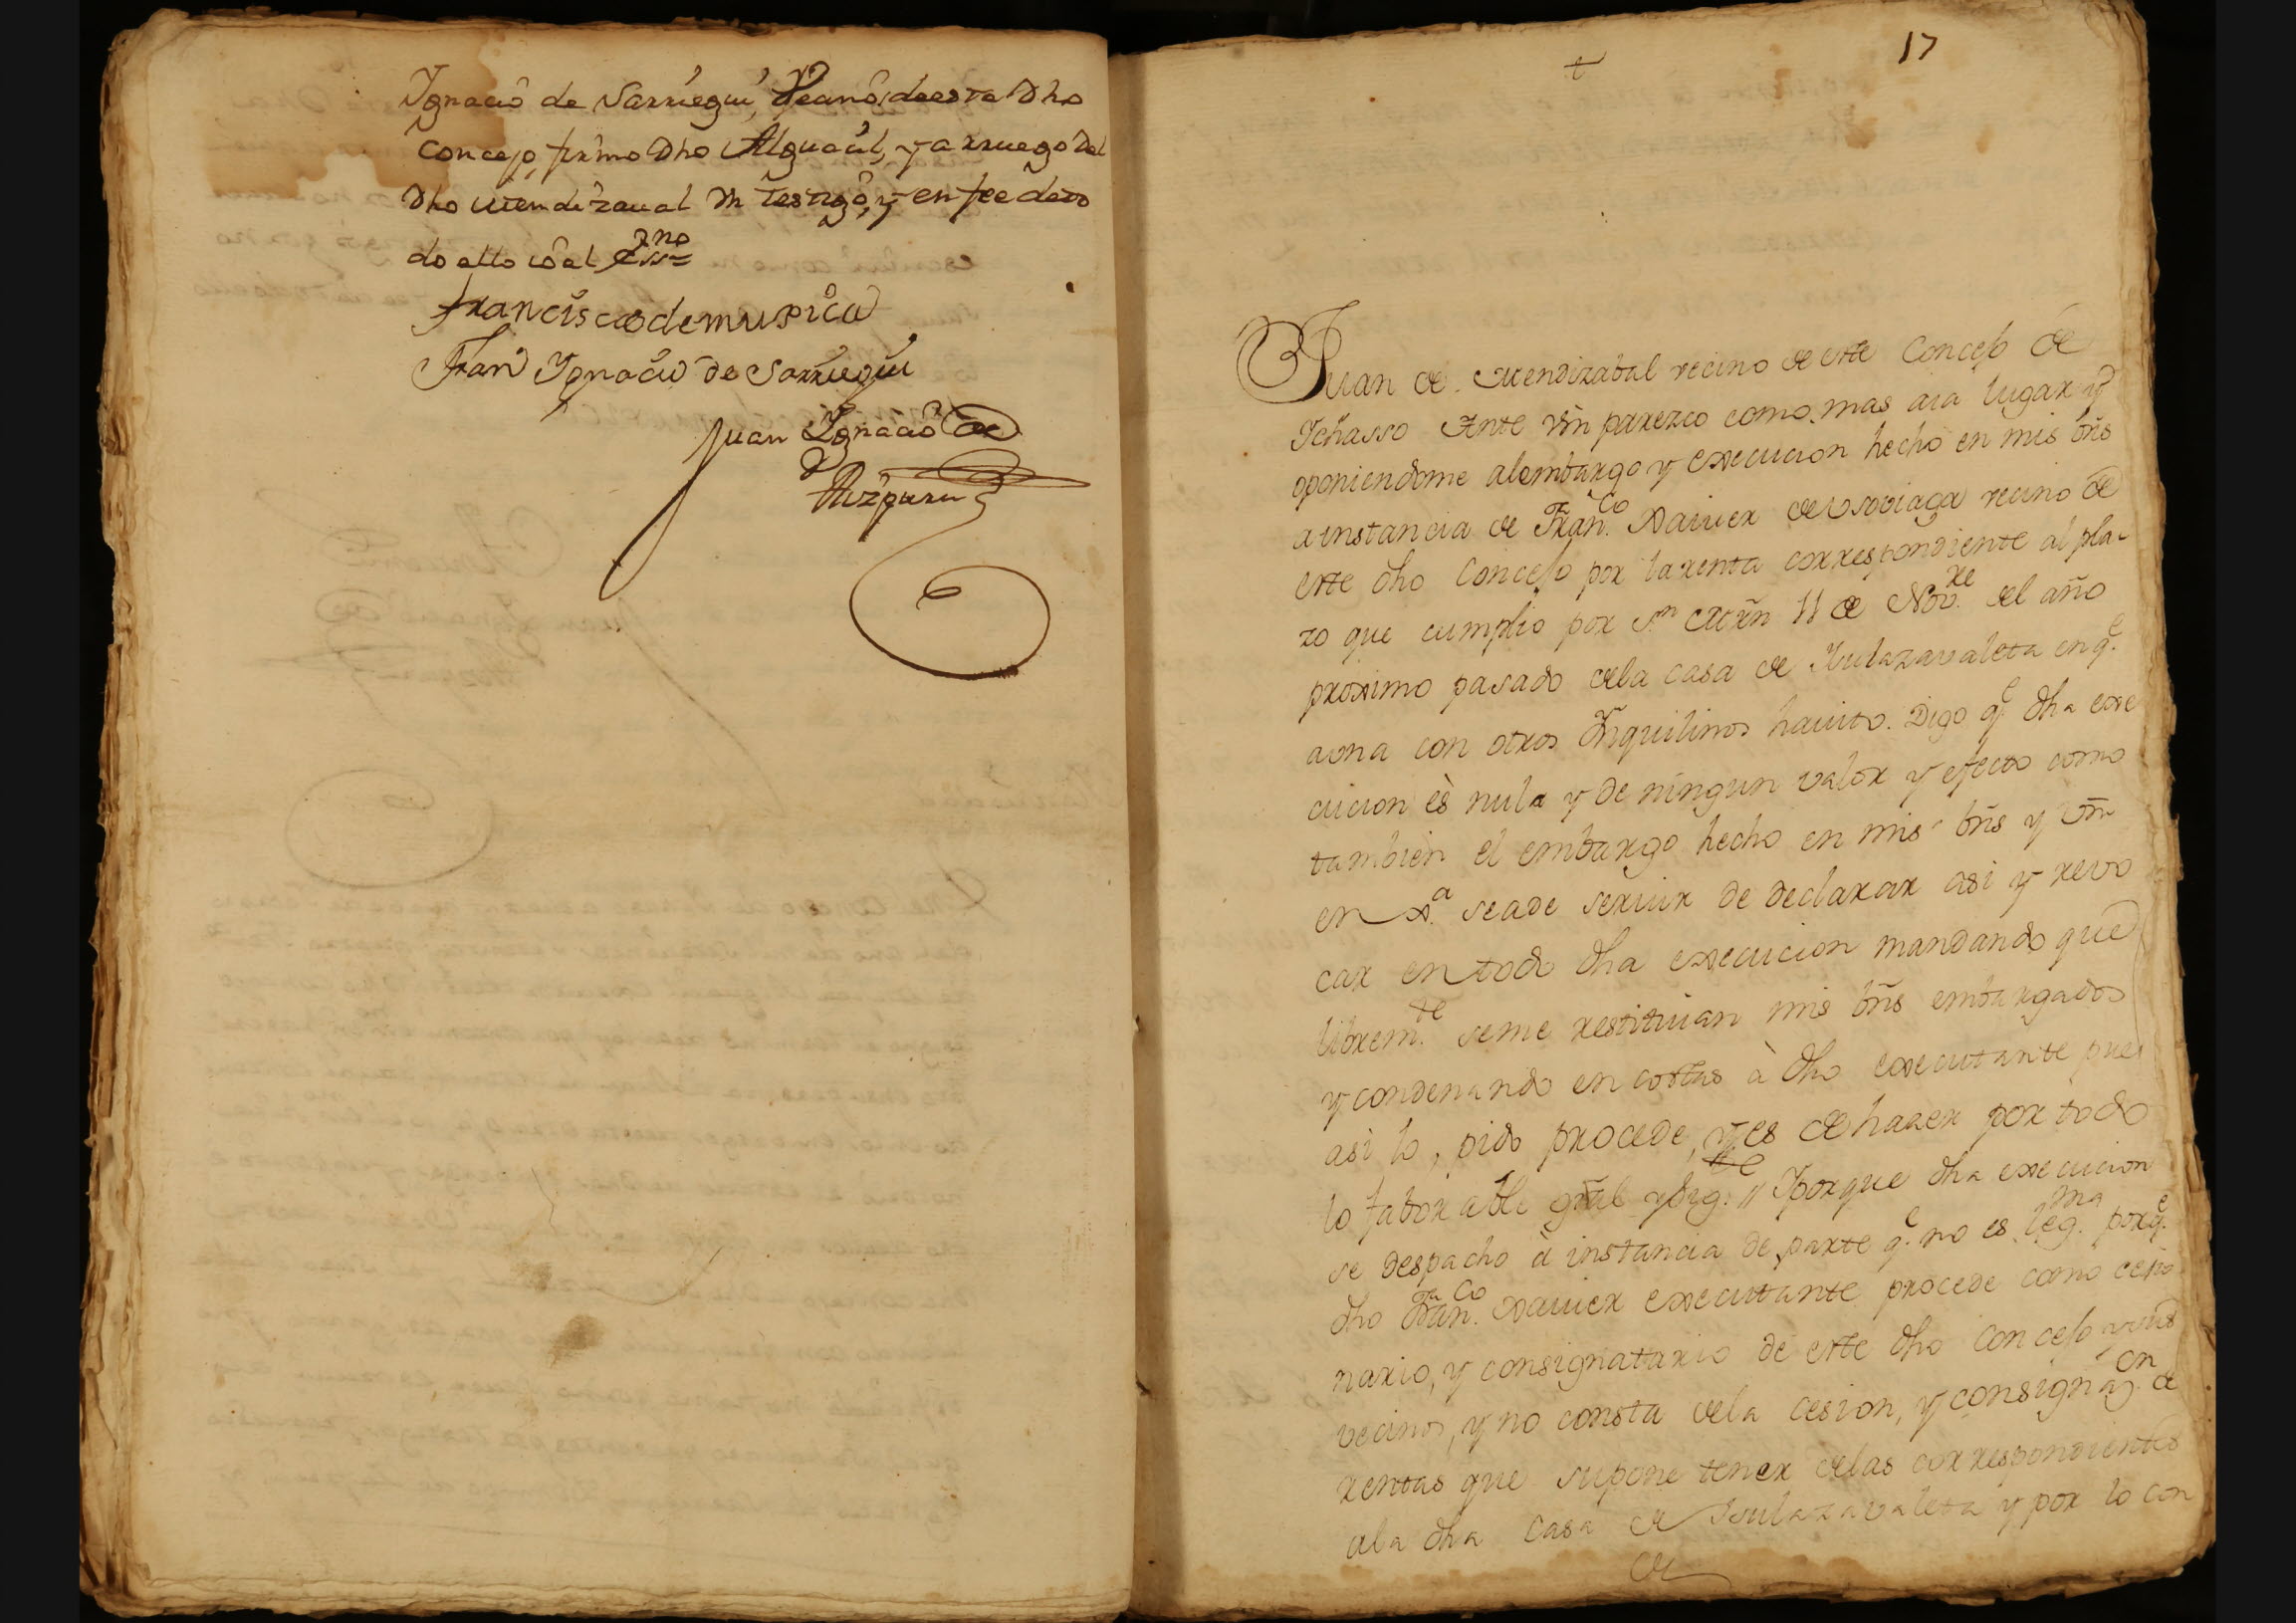 Ygnacio de Sarriegui, Vecinos de este Dho
Concejo, firmo Dho Alguacil, y a rruego del
Dho Mendizaual Vn testigo, y en fee de to
do ello io el Essno
Francisco de muxica
Fran Ygnacio de Sarriegui
Juan Ygnacio de
Aizpuru
17
Juan de Mendizabal vecino de este Concejo de
Ychasso Ante Vm parezco como mas aia lugar y
oponiendome al embargo y execucion hecho en mis bñs
a instancia de Franco. Xauier de Usoviaga vecino de
este dho Concejo por la renta correspondiente al pla-
zo que cumplio por Sn Mrñ 11 de Novre. del año
proximo pasado dela casa de Yrulazavaleta en qe.
avna con otros Ynquilinos hauito. Digo qe. dha exe
cucion ès nula y de ningun valor y efecto como
tambien el embargo hecho en mis bñs y Vm
en Xa. seade seruir de declarar asi y revo
car en todo dha execucion mandando que
libremte. seme restituian mis bñs embargados
y condenando en costas à dho executante pues
asi lo, pido procede, y es de hazer por todo
lo faborable gñal y sigte. // Yporque dha execucion
se despacho à instancia de parte qe. no es legma. porqe.
dho Franco. Xauier executante procede como cesio
nario, y consignatario de este dho Concejo y sus
vecinos, y no consta dela cesion, y consignaon. de
rentas que supone tener delas correspondientes
ala dha Casa de Yrulazavaleta y por lo con